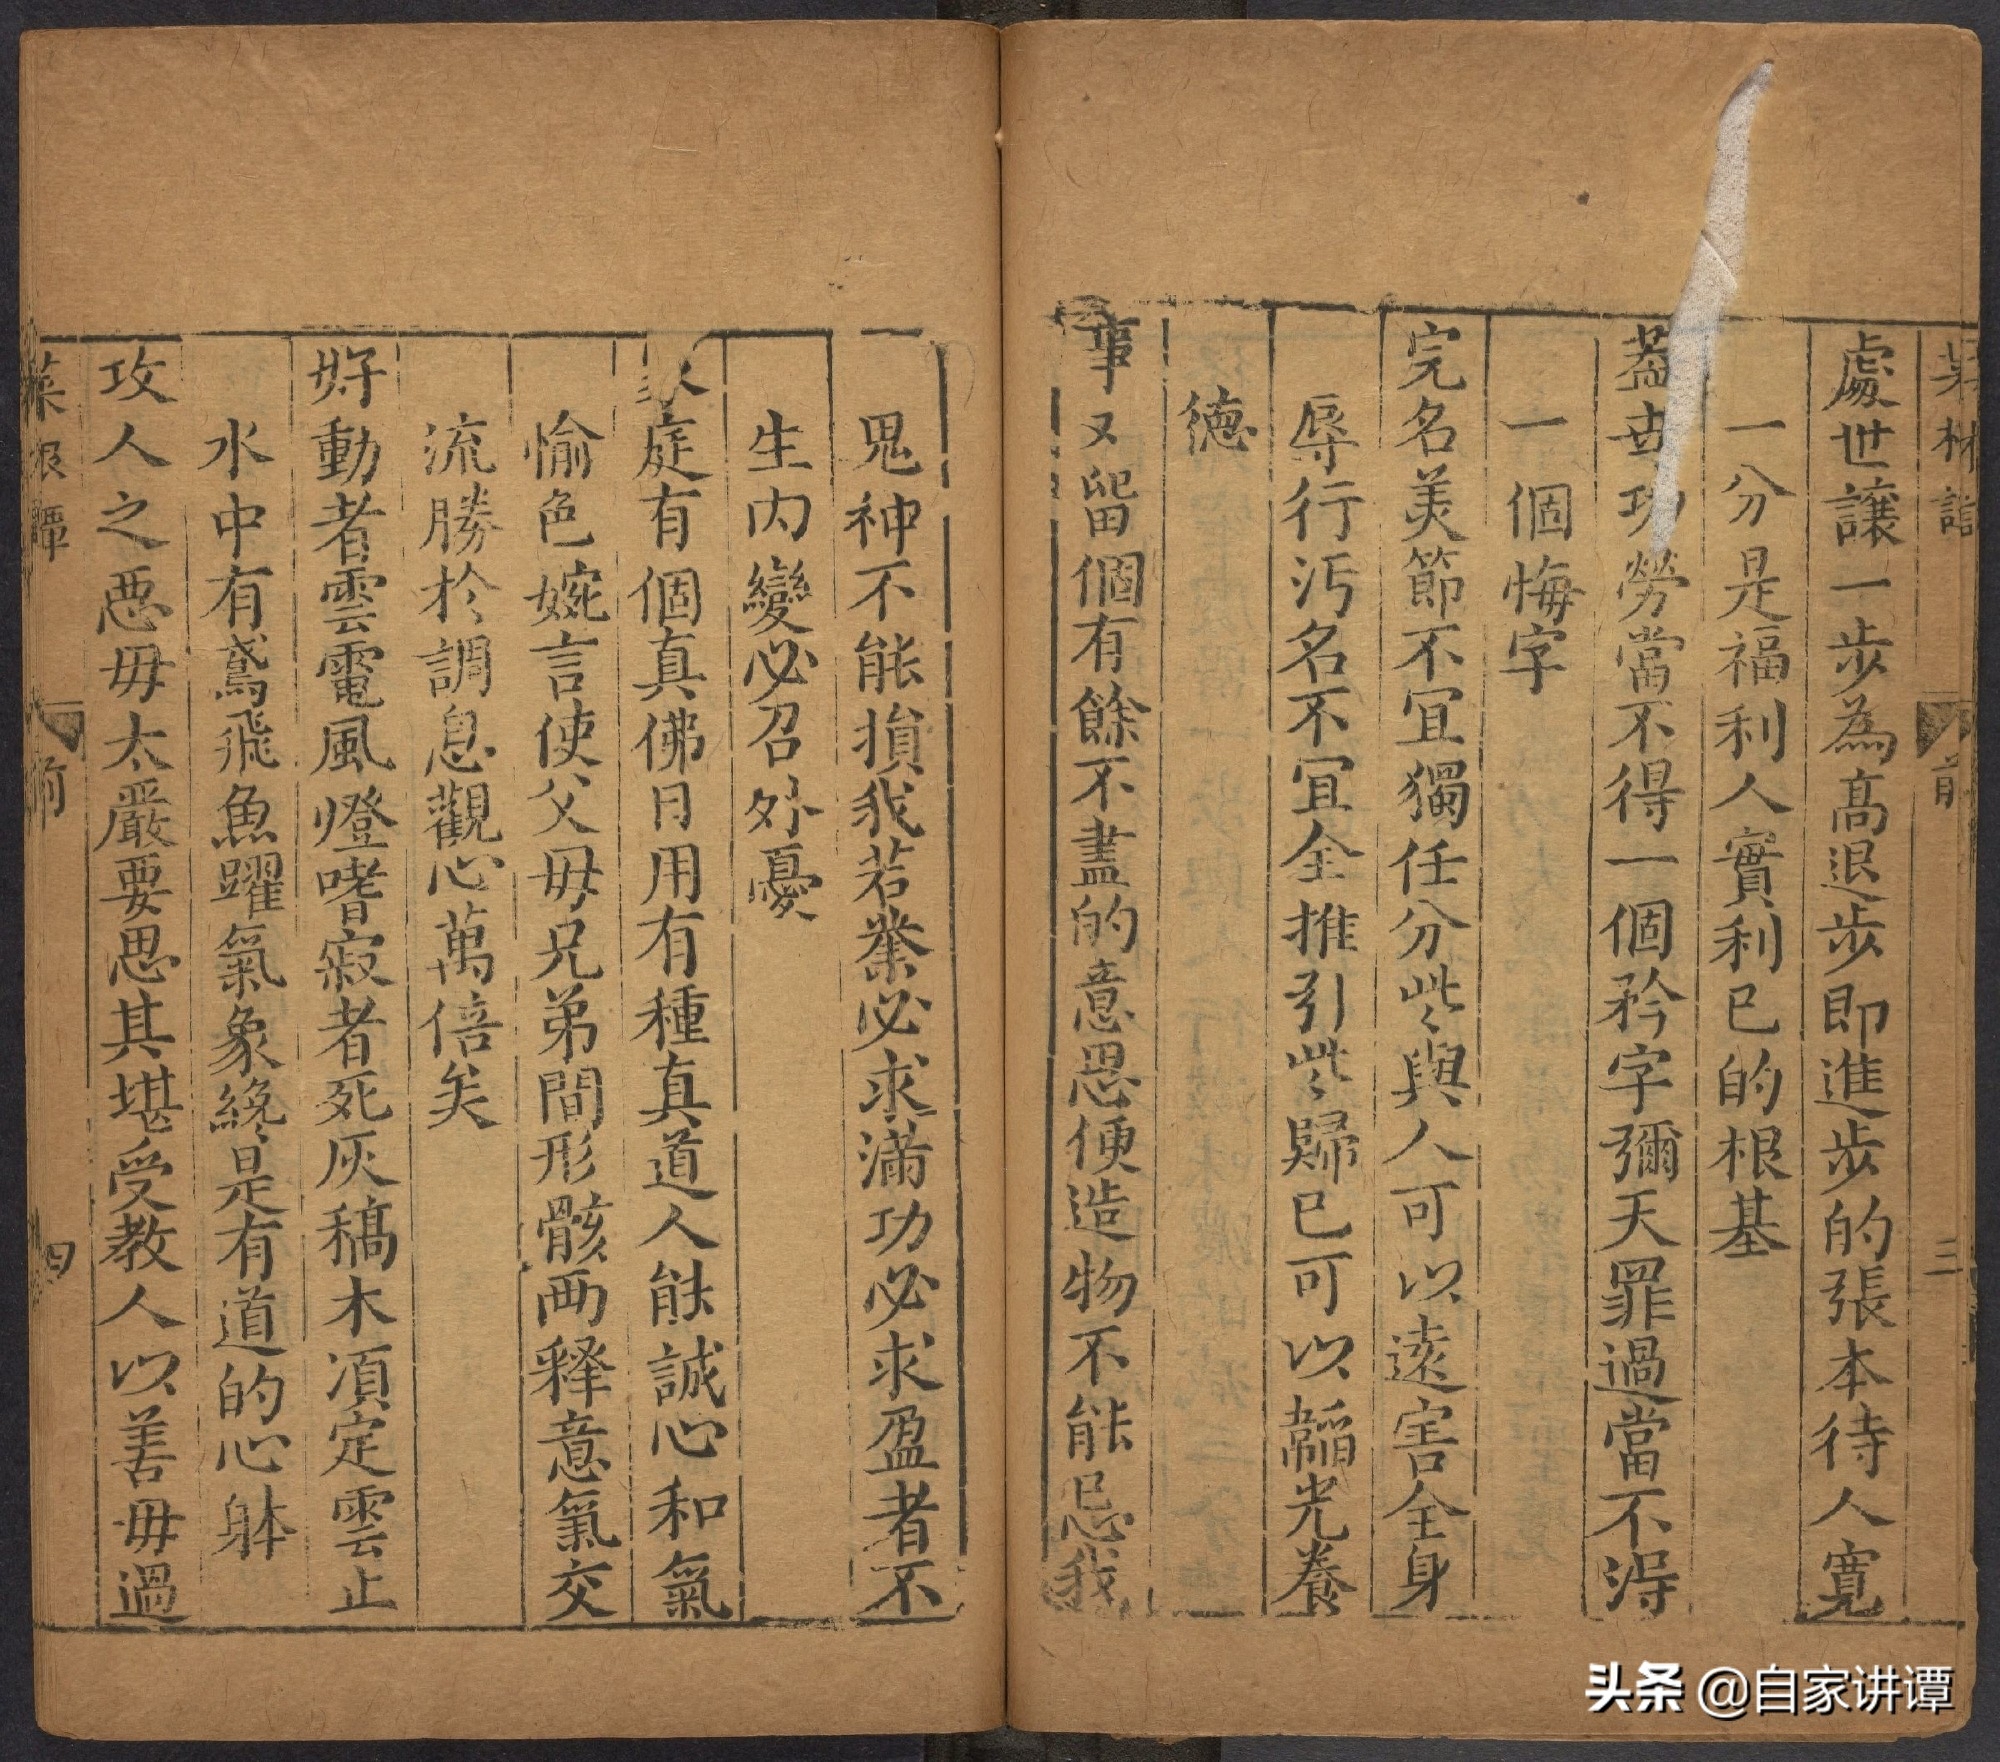 前
三
處世讓一步為高退步即進步的張本待人寬
一分是福利人實利已的根基
蓋世功勞當不得一個矜字彌天罪過當不得
一個悔字
完名美節不宜獨任分些與人可以遠害全身
辱行汚名不宜全推引些歸已可以韜光養
德
事又留個有餘不盡的意思便造物不能忌我
鬼神不能損我若業必求滿功必求盈者不
生內變必召外憂
家庭有個真佛日用有種真道人能誠心和氣
愉色婉言使父母兄弟間形骸兩釋意氣交
流勝於調息觀心萬倍矣
好動者雲電風燈嗜寂者死灰稿木須定雲止
水中有鳶飛魚躍氣象纔是有道的心躰
攻人之惡毋太嚴要思其堪受教人以善毋過
菜根譚
前
四
头条 @自家讲谭